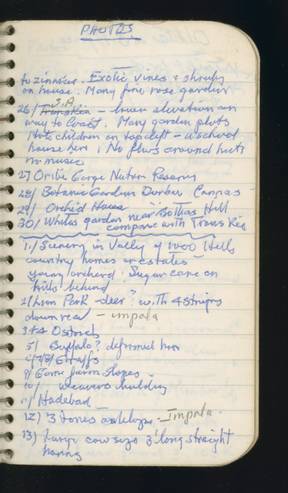 PHOTOS
to zinnias. Exotic vines & shrubs
on house. Many fine rose gardens
S.A.
26/ Transkei - lower elevation on
way to Coast. Many garden plots
Note children on top left -
house here. No flies around huts
no music
27 Oribi Gorge Nature Reserve
28/ Botanic Gardens Durban Cannas
29/ Orchid House
30/ Whites garden near Bothas Hill
compare with Trans Kei
1/ Scenery in Valley of 1000 Hills
country homes or estates
young orchard. Sugar cane on
hills behind
2/ Lion Park deer? with 4 stripes
down rear - impala
3+4 Ostrich
5/ Buffalo? deformed horn
6/7/8/ Giraffe
9/ Game farm slopes
10/ weavers building
11/ Hartebeest
12) 3 tones antelope - Impala.
13) Large cow size 3' long straight
horns